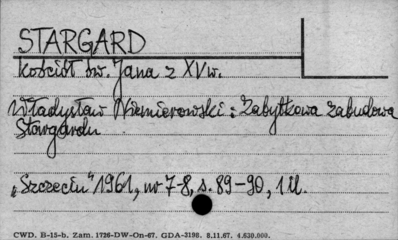 STARGARD
Kościół św. Jana z XV w.
Władysław Niemierowski: Zabytkowa zabudowa
Stargardu
„Szczecin" 1961, nr 7-8, s. 89-90, 1 il.
CWD. B-15-b. Zam. 1726-DW-On-67. GDA-3198. 8.11.67. 4.630.000.